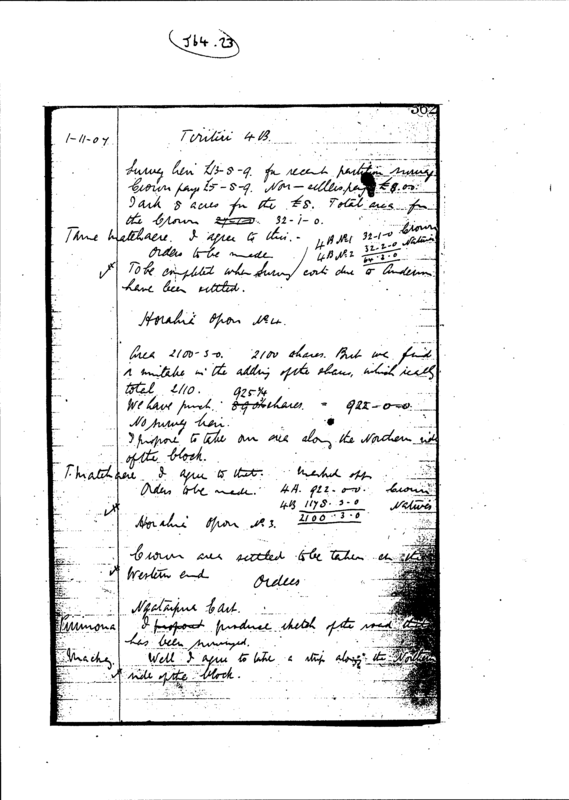 J64.23
362
1-11-07 Tiritiri 4B.
Survey lien £13-8-9. for recent partition survey
Crown pays £5-8-9. Non-sellers pay £8.0.0
I ask 8 acres for the £8. Total area for
the Crown 32-1-0.
Tame Matehaere. I agree to this.-
4B No1 32-1-0 Crown
Orders to be made
4B No.2 32-2-0 Natives
64-3-0
To be completed when survey costs due to Anderson
have been settled.
Horahia Opou No4.
Area 2100-3-0. 2100 shares. But we find
a mistake in the adding of the shares, which really
total 2110. 925 ¼
We have purch. shares. = 922-0-0.
No survey lien.
I propose to take our area along the Northern side
of the block.
T. Matehaere I agree to that. marked off
Orders to be made. 4A. 922-0-0. Crown
4B 1178.3-0 Natives
2100.3.0
Horahia Opou No 3.
Crown area settled to be taken on the
Western end Orders
Ngataipua East.
I propose produce sketch of the road that
has been surveyed.
Mackay Well I agree to take a strip along the Northern
side of the block.